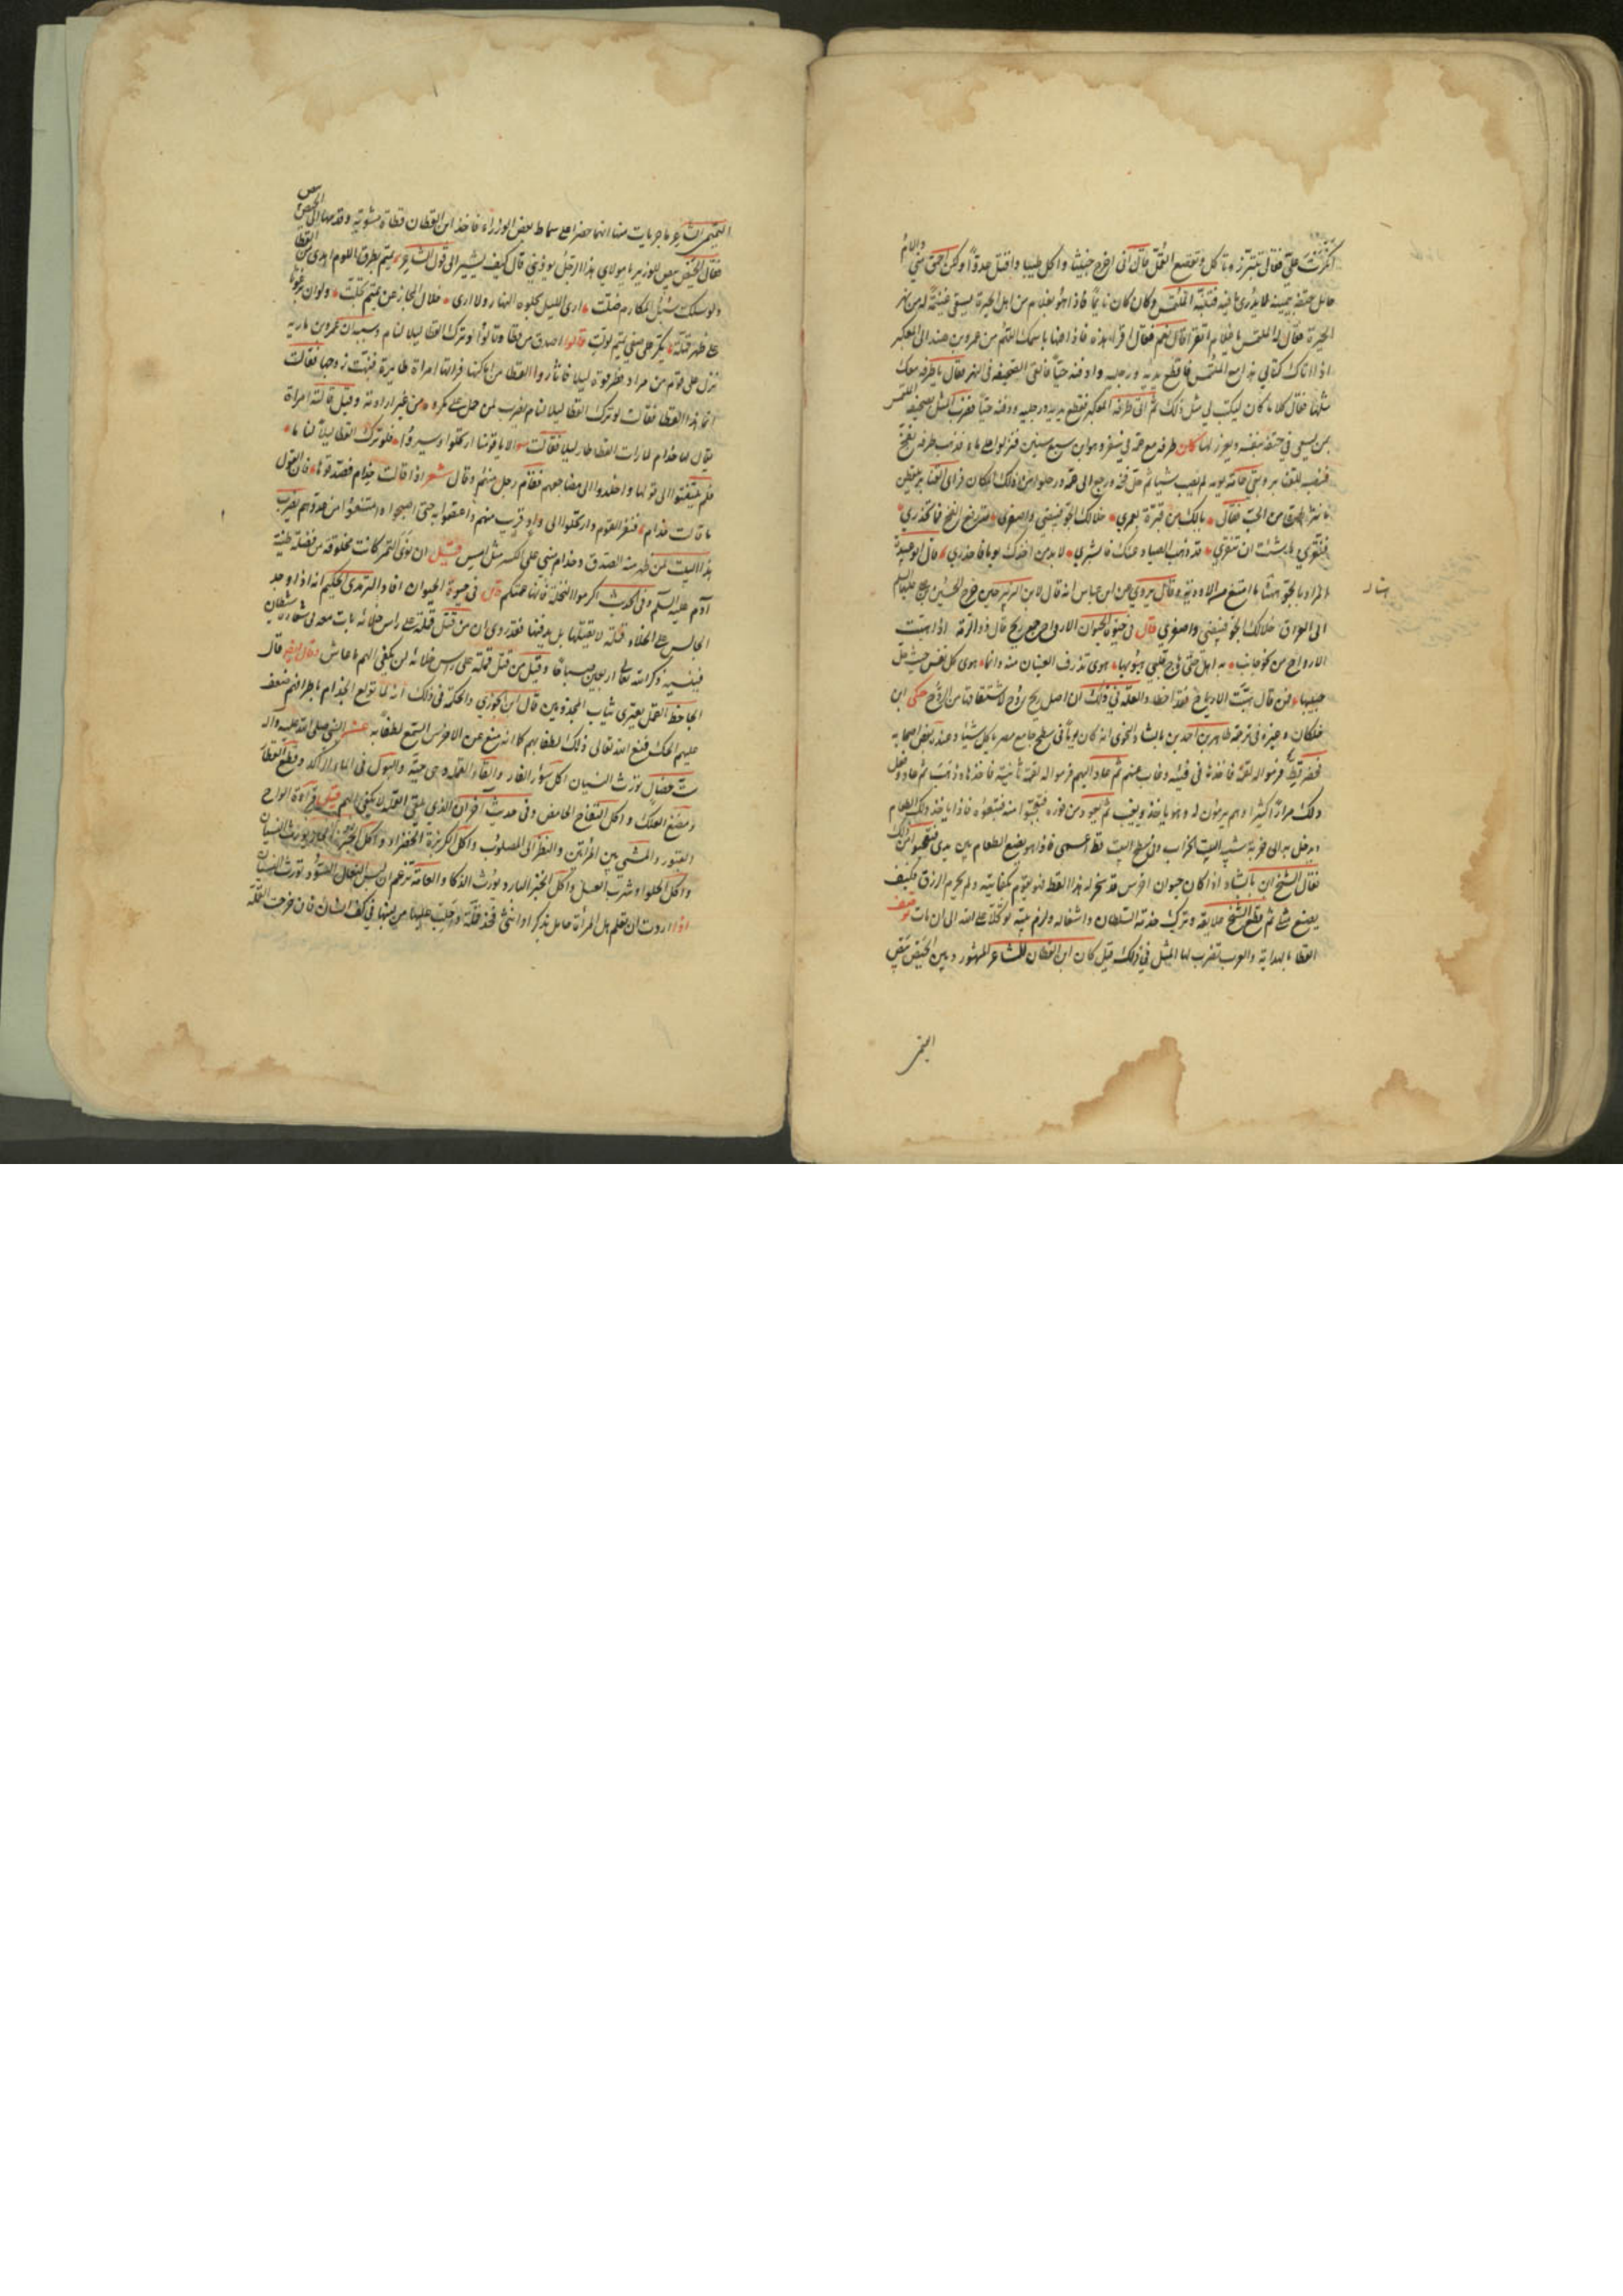 اكثرت علي فقال تتبرز وتاكل وتقصع القمل قال اني اخرج خبيثا وآكل طيبا واقتل عدوا ولكن احمق مني والأم
حامل حتفه بيمينه لا يدري ما فيه فتنبه المتلمس وكان كان نائما فاذا هو بغلام من اهل الحيرة يسقي غنيمة له من نهر
الحيرة فقال له المتلمس يا غلام اتقرأ قال نعم فقال اقرأ هذه فاذا فيها باسمك اللهم من عمرو بن هند الى المعكبر
اذا اتاك كتابي هذا مع المتلمس فاقطع يديه ورجليه وادفنه حيا فالقى الصحيفه في النهر فقال يا طرفه معك
مثلها فقال كلا ما كان ليكتب لي مثل ذلك ثم اتى طرفه المعكبر فقطع يديه ورجليه ودفنه حيا فضرب المثل بصحيفة المتلمس
لمن يسعى في حتفه بنفسه ويغرر لها كان طرفه مع عمه في سفر وهو ابن سبع سنين فنزلوا على ماء فذهب طرفه بفخ
فنصبه للقنابر وبقي عامة يومه لم يصب شيئا ثم حمل فخه ورجع الى عمه ورحلوا من ذلك المكان فراى القنابر يلتقطن
ما نثر لهن من الحب فقال يا لك من قبرة بمعمر خلا لك الجو فبيضي واصفري قد رفع الفخ فما تحذري
ونقري ما شئت ان تنقري قد ذهب الصياد عنك فابشري لا بد من اخذك يوما فاحذري قال ابو عبيدة
المراد بالجو هنا ما اتسع من الاودية وقال يروي عن ابن عباس انه قال لابن الزبير حين خرج الحسين بن علي عليهما السلم
الى العراق خلا لك الجو فبيضي واصفري قال في حيوة الحيوان الارواح جمع ريح قال ذو الرمة اذا هبت
الارواح من نحو جانب به اهل مي هاج قلبي هبوبها هوى تذرف العينان منه وانما هوى كل نفس حيث حل
حبيبها ومن قال هبت الارياح فقد اخطا والعلة في ذلك ان اصل ريح روح لاشتقاقها من الروح حكى ابن
خلكان وغيره في ترجمة طاهر بن احمد بن بابشاد النحوي انه كان يوما في سطح جامع مصر ياكل شيئا وعنده بعض اصحابه
فحضر قط فرموا له لقمة فاخذها في فيه وغاب عنهم ثم عاد اليهم فرموا له لقمة ثانية فاخذها وذهب ثم عاد وفعل
ذلك مرارا كثيرا وهم يرمون له وهو ياخذ ويغيب ثم يعود من فوره فتعجبوا منه فتبعوه فاذا ياخذ ذلك الطعام
ويدخل به الى خربة شبه البيت الخراب وفي سطح البيت قط اعمى فاذا هو يضع الطعام بين يديه فتعجبوا من ذلك
فقال الشيخ ابن بابشاد اذا كان حيوان اخرس قد سخر له هذا القط فهو يقوم بكفايته ولم يحرم الرزق فكيف
يضيع مثلي ثم قطع الشيخ علايقه وترك خدمة السلطان واشغاله ولزم بيته توكلا على الله الى ان مات توصف
القطا بالهداية والعرب تضرب لها المثل في ذلك قيل كان ابن القطان الشاعر المشهور وبين الحيص بيص
التميمي الشاعر ماجريات منها انهما حضرا على سماط بعض الوزراء فاخذ ابن القطان قطاة مشوية وقدمها الى الحيص بيص
فقال الحيص بيص للوزير يا مولاي هذا الرجل يوذيني قال كيف يشير الى قول الشاعر تميم بطرق اللوم اهدى من القطا
ولو سلكت سبل المكارم ضلت ارى الليل يجلوه النهار ولا ارى خلال المخازي عن تميم تجلت ولو ان برغوثا
على ظهر قملة يكر على صفي تميم لولت قالوا اصدق من قطا وقالوا لو ترك القطا ليلا لنام وسببه ان عمرو بن مارية
نزل على قوم من مراد فطرقوه ليلا فاثاروا القطا من اماكنها فراتها امراة طايرة فنبهت زوجها فقالت
انما هذا القطا فقالت لو ترك القطا ليلا لنام يضرب لمن حمل على مكروه من غير ارادته وقيل قالته امراة
يقال لها حذام لما رات القطا طار ليلا فقالت الا يا قومنا ارتحلوا وسيروا فلو ترك القطا ليلا لناما
فلم يلتفتوا الى قولها واخلدوا الى مضاجعهم فقام رجل منهم وقال شعر اذا قالت حذام فصدقوها فان القول
ما قالت حذام فنفر القوم وارتحلوا الى واد قريب منهم واعتصموا به حتى اصبحوا وامتنعوا من عدوهم يضرب
هذا البيت لمن ظهر منه الصدق وحذام مبني على الكسر مثل امس قيل ان نوى التمر كانت مخلوقة من فضلة طينة
آدم عليه السلم وفي الحديث اكرموا النخلة فانها عمتكم قال في حيوة الحيوان افاد الترمذي الحكيم انه اذا وجد
الجالس على الخلاء قملة لا يقتلها بل يدفنها فقد روى ان من قتل قملة على راس خلائه بات معه في شعاره شيطان
فينسيه ذكر الله تعالى اربعين صباحا وقيل من قتل قملة على راس خلائه لن يكفى الهم ما عاش قال
الجاحظ القمل يعتري ثياب المجذومين قال ابن الجوزي والحكمة في ذلك انه لما تولع الجذام باطرافهم ضعف
عليهم الحك فمنع الله تعالى ذلك لطفا بهم كما انه منع عن الاخرس السمع لطفا به عن النبي صلى الله عليه واله
ست خصال تورث النسيان اكل سؤر الفار والقاء القملة وهي حية والبول في الماء الراكد وقطع القطار
ومضغ العلك واكل التفاح الحامض وفي حديث آخر ان الذي يلقي القملة لا يكفى الهم قيل قراءة الواح
القبور والمشي بين المرأتين والنظر الى المصلوب واكل الكزبرة الخضراء واكل الخبز الحار يورث النسيان
واكل الحلوا وشرب العسل واكل الخبز البارد يورث الذكا والعامة تزعم ان لبس النعال السود تورث النسيان
اذا اردت ان تعلم هل المرأة حامل بذكر او انثى فخذ قملة واحلب عليها من لبنها في كف انسان فان خرجت القملة
التمي